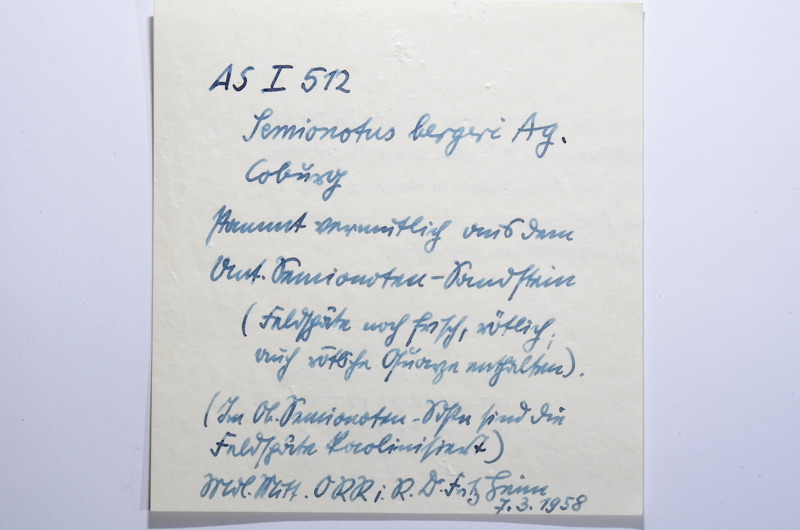 AS I 512
Semionotus bergeri Ag.
Coburg
stammt vermutlich aus dem
Unt. Semionoten-Sandstein
(Feldspäte noch frisch, rötlich,
auch rötliche Quarze enthalten).
(Im Ob. Semionoten-Schn sind die
Feldspäte kaolinisiert)
Mdl. Mitt. ORR i. R. Dr Fritz Heim
7.3.1958